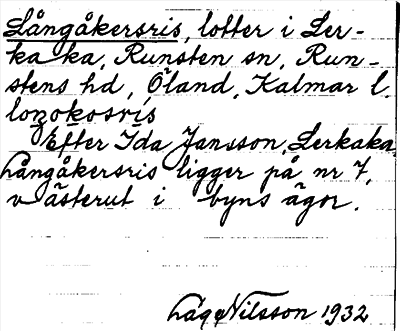 Långåkersris, lotter i Ler-
kaka, Runsten sn, Run-
stens hd, Öland, Kalmar l.
Efter Ida Jansson, Lerkaka.
Långåkersris ligger på nr 7,
västerut i byns ägor.
Nilsson 1932